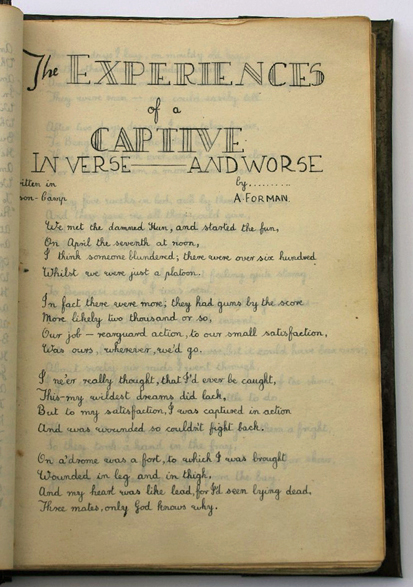 The EXPERIENCES
of a
CAPTIVE
IN VERSE — AND WORSE
itten in by..........
son-Camp A. FORMAN.
We met the damned Hun, and started the fun,
On April the seventh at noon,
I think someone blundered; there were over six hundred
Whilst we were just a platoon.
In fact there were more; they had guns by the score
More likely two thousand or so,
Our job — rearguard action, to our small satisfaction,
Was ours, wherever we'd go.
I ne'er really thought, that I'd ever be caught,
This my wildest dreams did lack,
But to my satisfaction, I was captured in action
And was wounded so couldn't fight back.
On a'drome was a fort, to which I was brought
Wounded in leg and in thigh,
And my heart was like lead, for I'd seen lying dead,
Three mates, only God knows why.